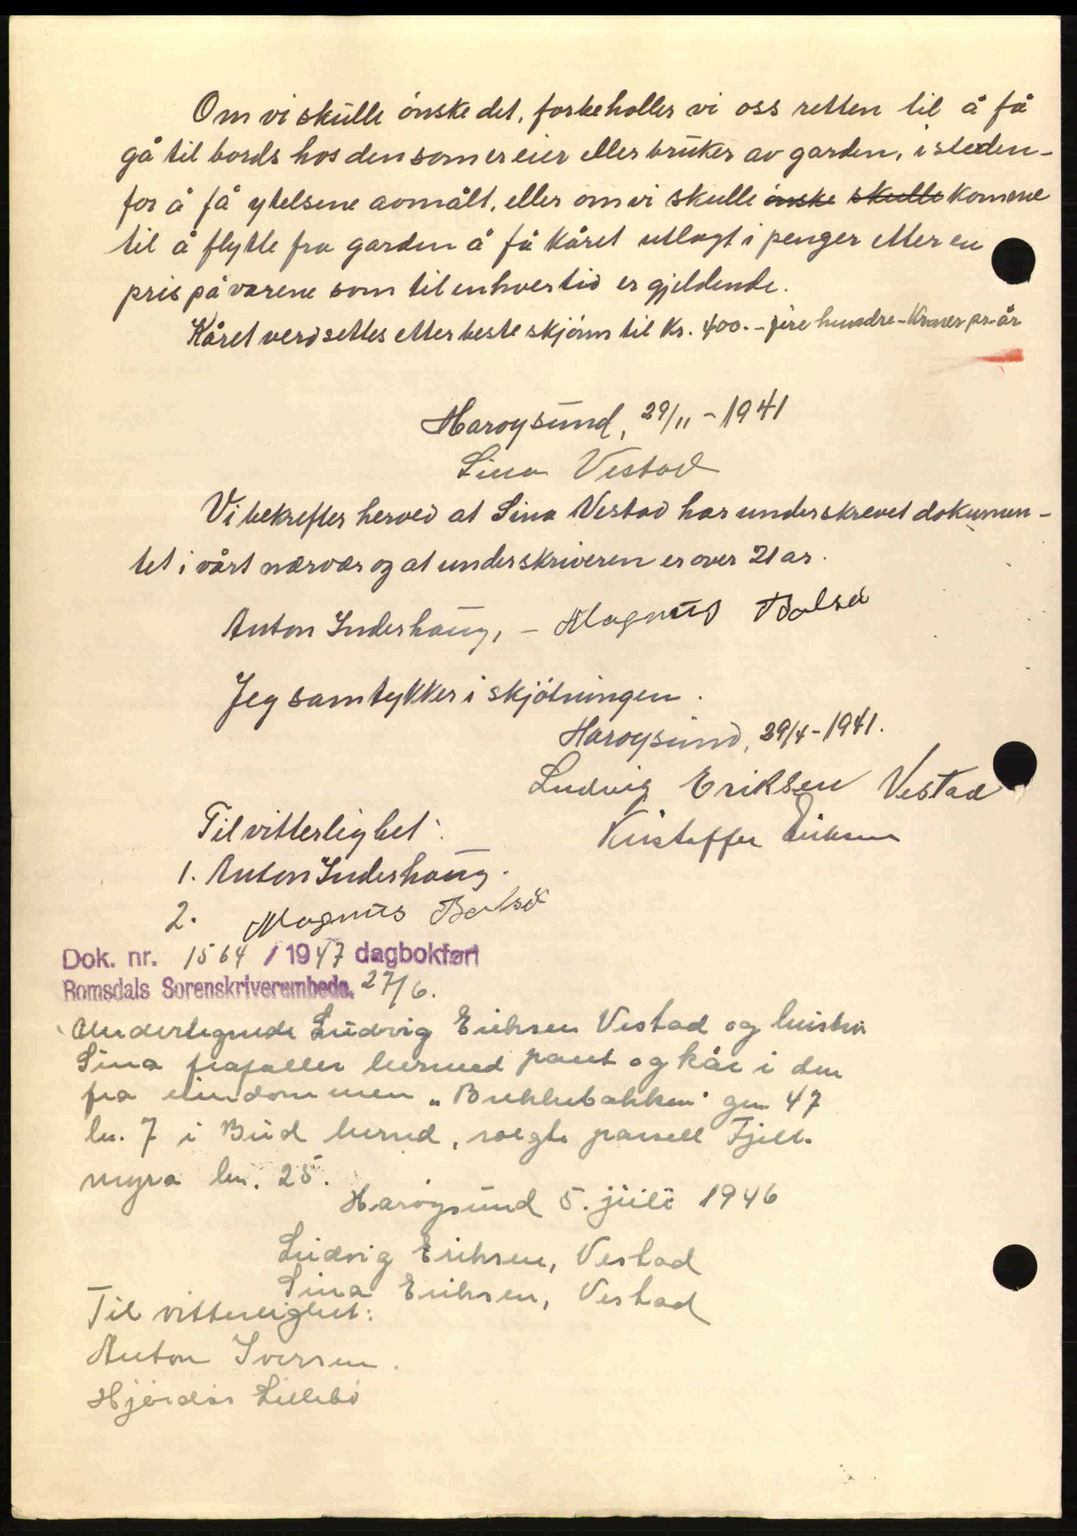 Om vi skulle ønske det, forbeholler vi oss retten til å få
gå til bords hos den som er eier eller bruker av garden, i steden-
for å få ytelsene avmålt, eller om vi skulle ønske skulle komme
til å flytte fra garden å få kåret utlagt i penger etter en
pris på varene som til enhver tid er gjeldende.
Kåret verdsettes etter beste skjönn til Kr. 400.- fire hundre - Kroner pr. år
Harøysund, 29/11 - 1941
Sina Vestad
Vi bekrefter herved at Sina Vestad har underskrevet dokumen-
tet i vårt nærvær og at underskriveren er over 21 år.
Anton Inderhaug, - Magnus Bolsø
Jeg samtykker i skjötningen.
Harøysund, 29/4 - 1941.
Ludvig Eriksen Vestad
Kristoffer Eriksen
Til vitterlighet:
1. Anton Inderhaug.
2. Magnus Bolsø
Dok. nr. 1564 / 1947 dagbokført
Romsdals Sorenskriverembede. 27/6.
Undertegnede Ludvig Eriksen Vestad og hustru
Sina frafaller hermed pant og kår i den
fra eiendommen „Brekkebakken" gn. 47
bn. 7 i Bud herred, solgte parsell Fjell-
myra bn. 25.
Harøysund 5. juli 1946
Ludvig Eriksen, Vestad
Sina Eriksen, Vestad
Til vitterlighet:
Anton Iversen.
Hjørdis Lillebø